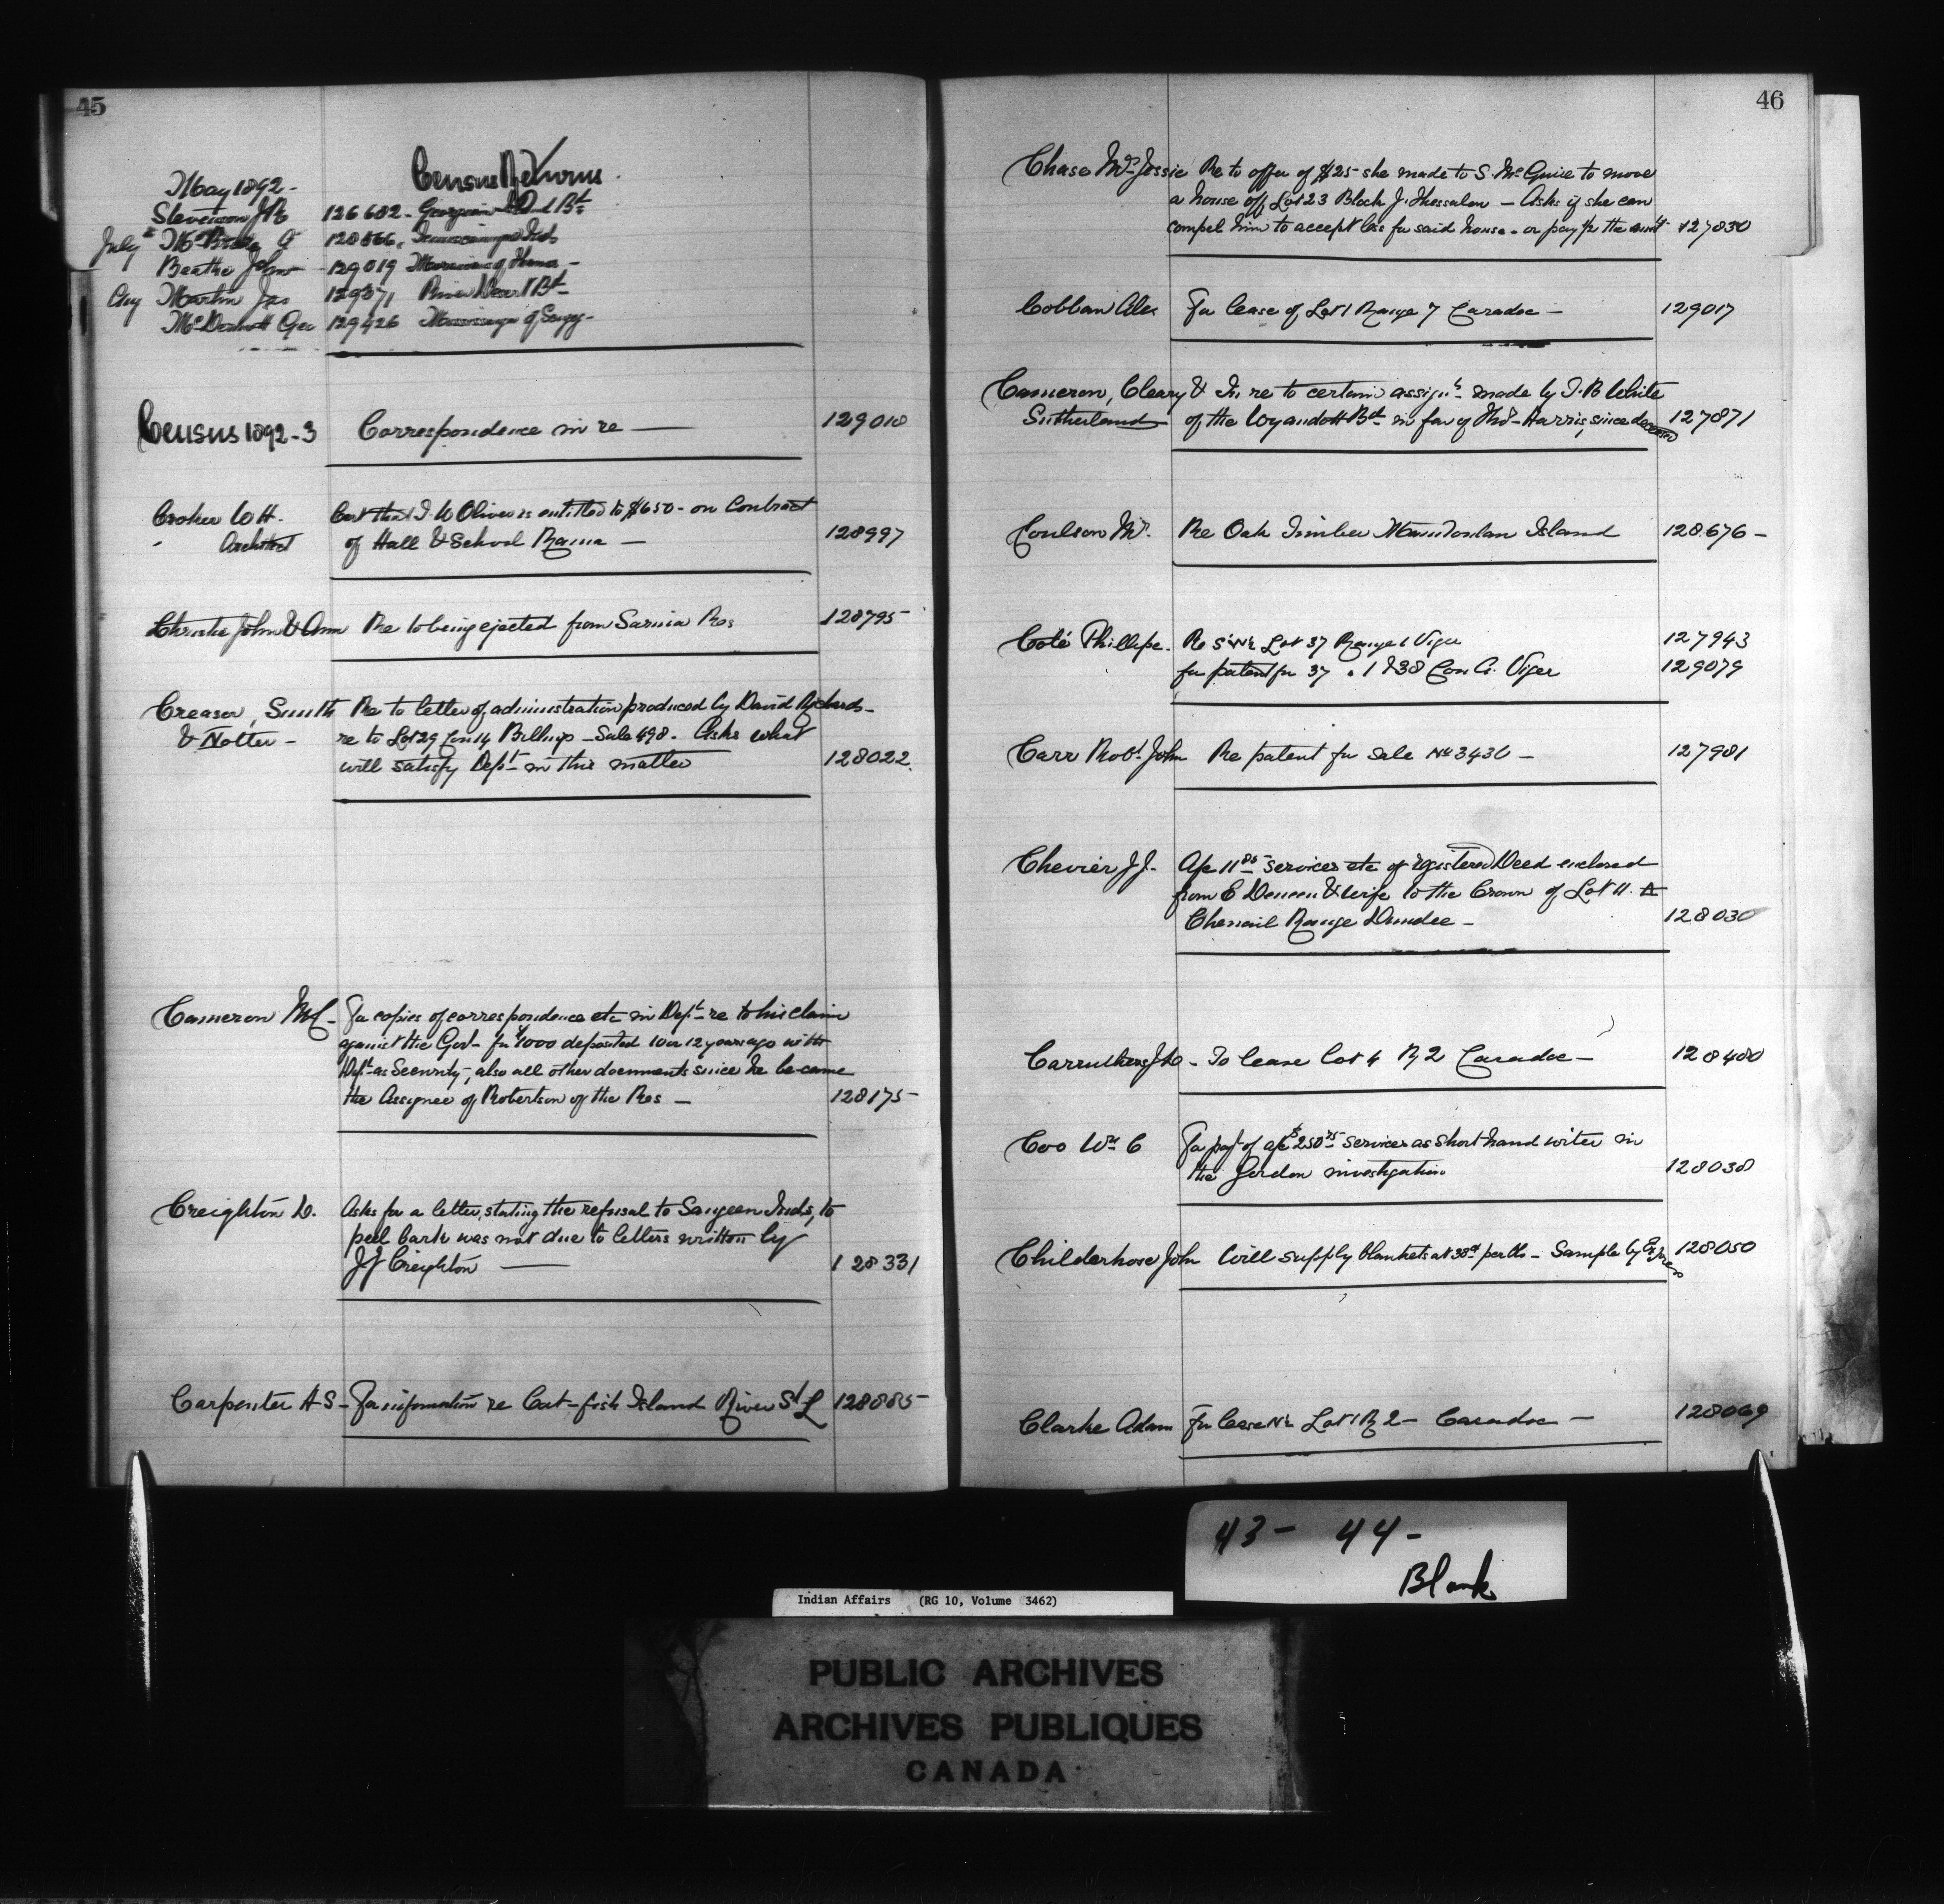 45
Census Returns
May 1892 -
Stevenson 126602 - Georgian Bt
July 128866
Beattie John 129019
Aug Martin Jas 129371 River Desert Bt
McDermott Geo 129426 of Scugog -
Census 1892-3 Correspondence in re — 129010
Croker W H. Cert that J. W Oliver is entitled to $650 - on Contract
Architect of Hall & School Rama — 128997
Christie John & Ann Re to being ejected from Sarnia Res 128795
Creasor, Smith Re to letter of administration produced by David Richards -
& Notter - re to Lot 29 Con 14 - Sale 498. Asks what
will satisfy Dept in this matter 128022
Cameron M C - For copies of correspondence etc in Dept re to his claim
against the Govt for $1000 deposited 10 or 12 years ago with
Dept as Security, also all other documents since he became
the Assignee of Robertson of the Res — 128175
Creighton D. Asks for a letter, stating the refusal to Saugeen Inds, to
peel bark was not due to letters written by
J J Creighton — 128331
Carpenter A S - For information re Cat-fish Island River St L 128885
46
Chase Mrs Jessie Re to offer of $25 - she made to S. McGuire to move
a house off Lot 23 Block J. Thessalon — Asks if she can
compel him to accept less for said house - or pay for the amt 127830
Cobban Alex For lease of Lot 1 Range 7 Caradoc — 129017
Cameron, Cleary & In re to certain assigts made by J. B White
Sutherland of the Wyandott Bd in fav of Thos Harris, since deceased 127871
Coulson Mr. Re Oak Timber Manitoulin Island 128676 -
Coté Phillipe. Re S½ N½ Lot 37 Range 1 Viger 127943
for patent for 37 . 1 & 38 Con A. Viger 129079
Carr Robt. John Re patent for Sale No 3430 — 127981
Chevier J J. services etc of registered Deed enclosed
from E & wife to the Crown of Lot 11.
Chenail Range Dundee — 128030
Carruthers - To lease lot 4 R 2 Caradoc — 128480
Coo Wm C For payt of services as short hand writer in
the Jordon investigation 128038
Childerhose John Will supply blankets at 38¢ per lb - Sample by Express 128050
Clarke Adam For lease N½ Lot 1 R 2 - Caradoc — 128069
43 - 44 -
Blank
Indian Affairs (RG 10, Volume 3462)
PUBLIC ARCHIVES
ARCHIVES PUBLIQUES
CANADA